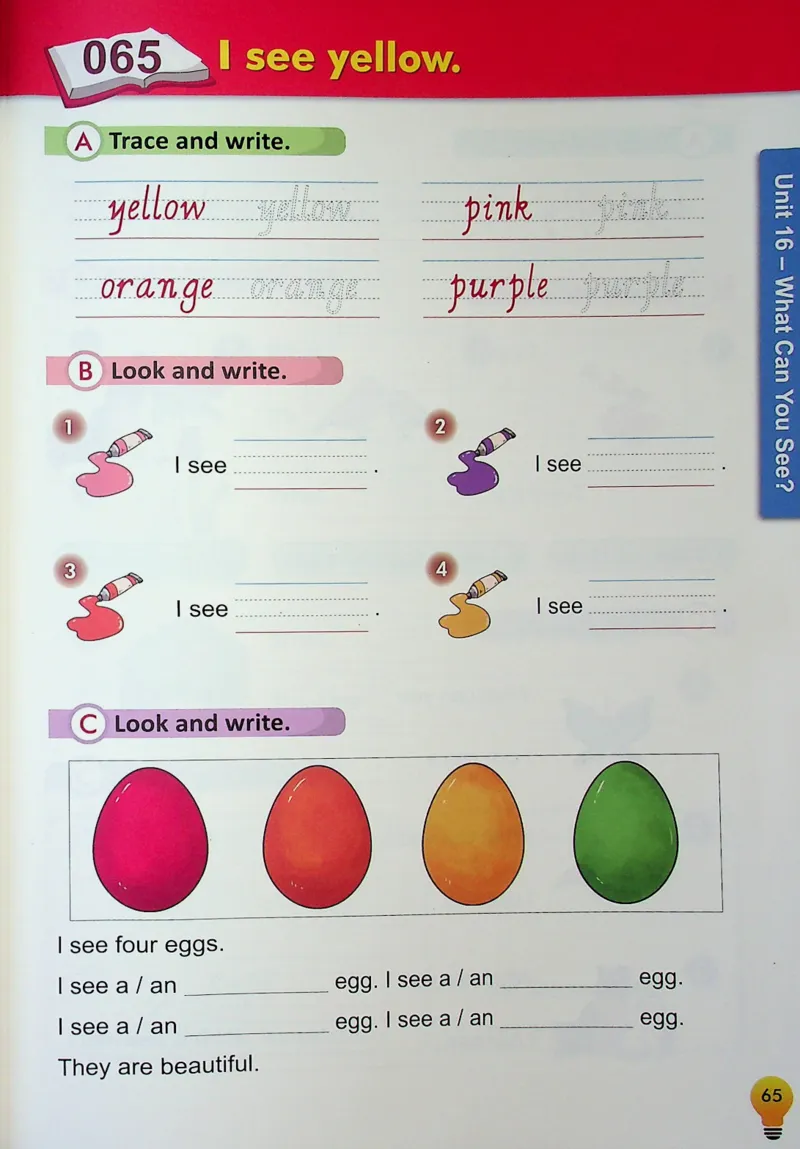 065 I see yellow.
A Trace and write.
yellow yellow pink pink
orange orange purple purple
B Look and write.
1 I see . 2 I see .
3 I see . 4 I see .
C Look and write.
I see four eggs.
I see a / an ____________ egg. I see a / an ____________ egg.
I see a / an ____________ egg. I see a / an ____________ egg.
They are beautiful.
Unit 16 – What Can You See?
65